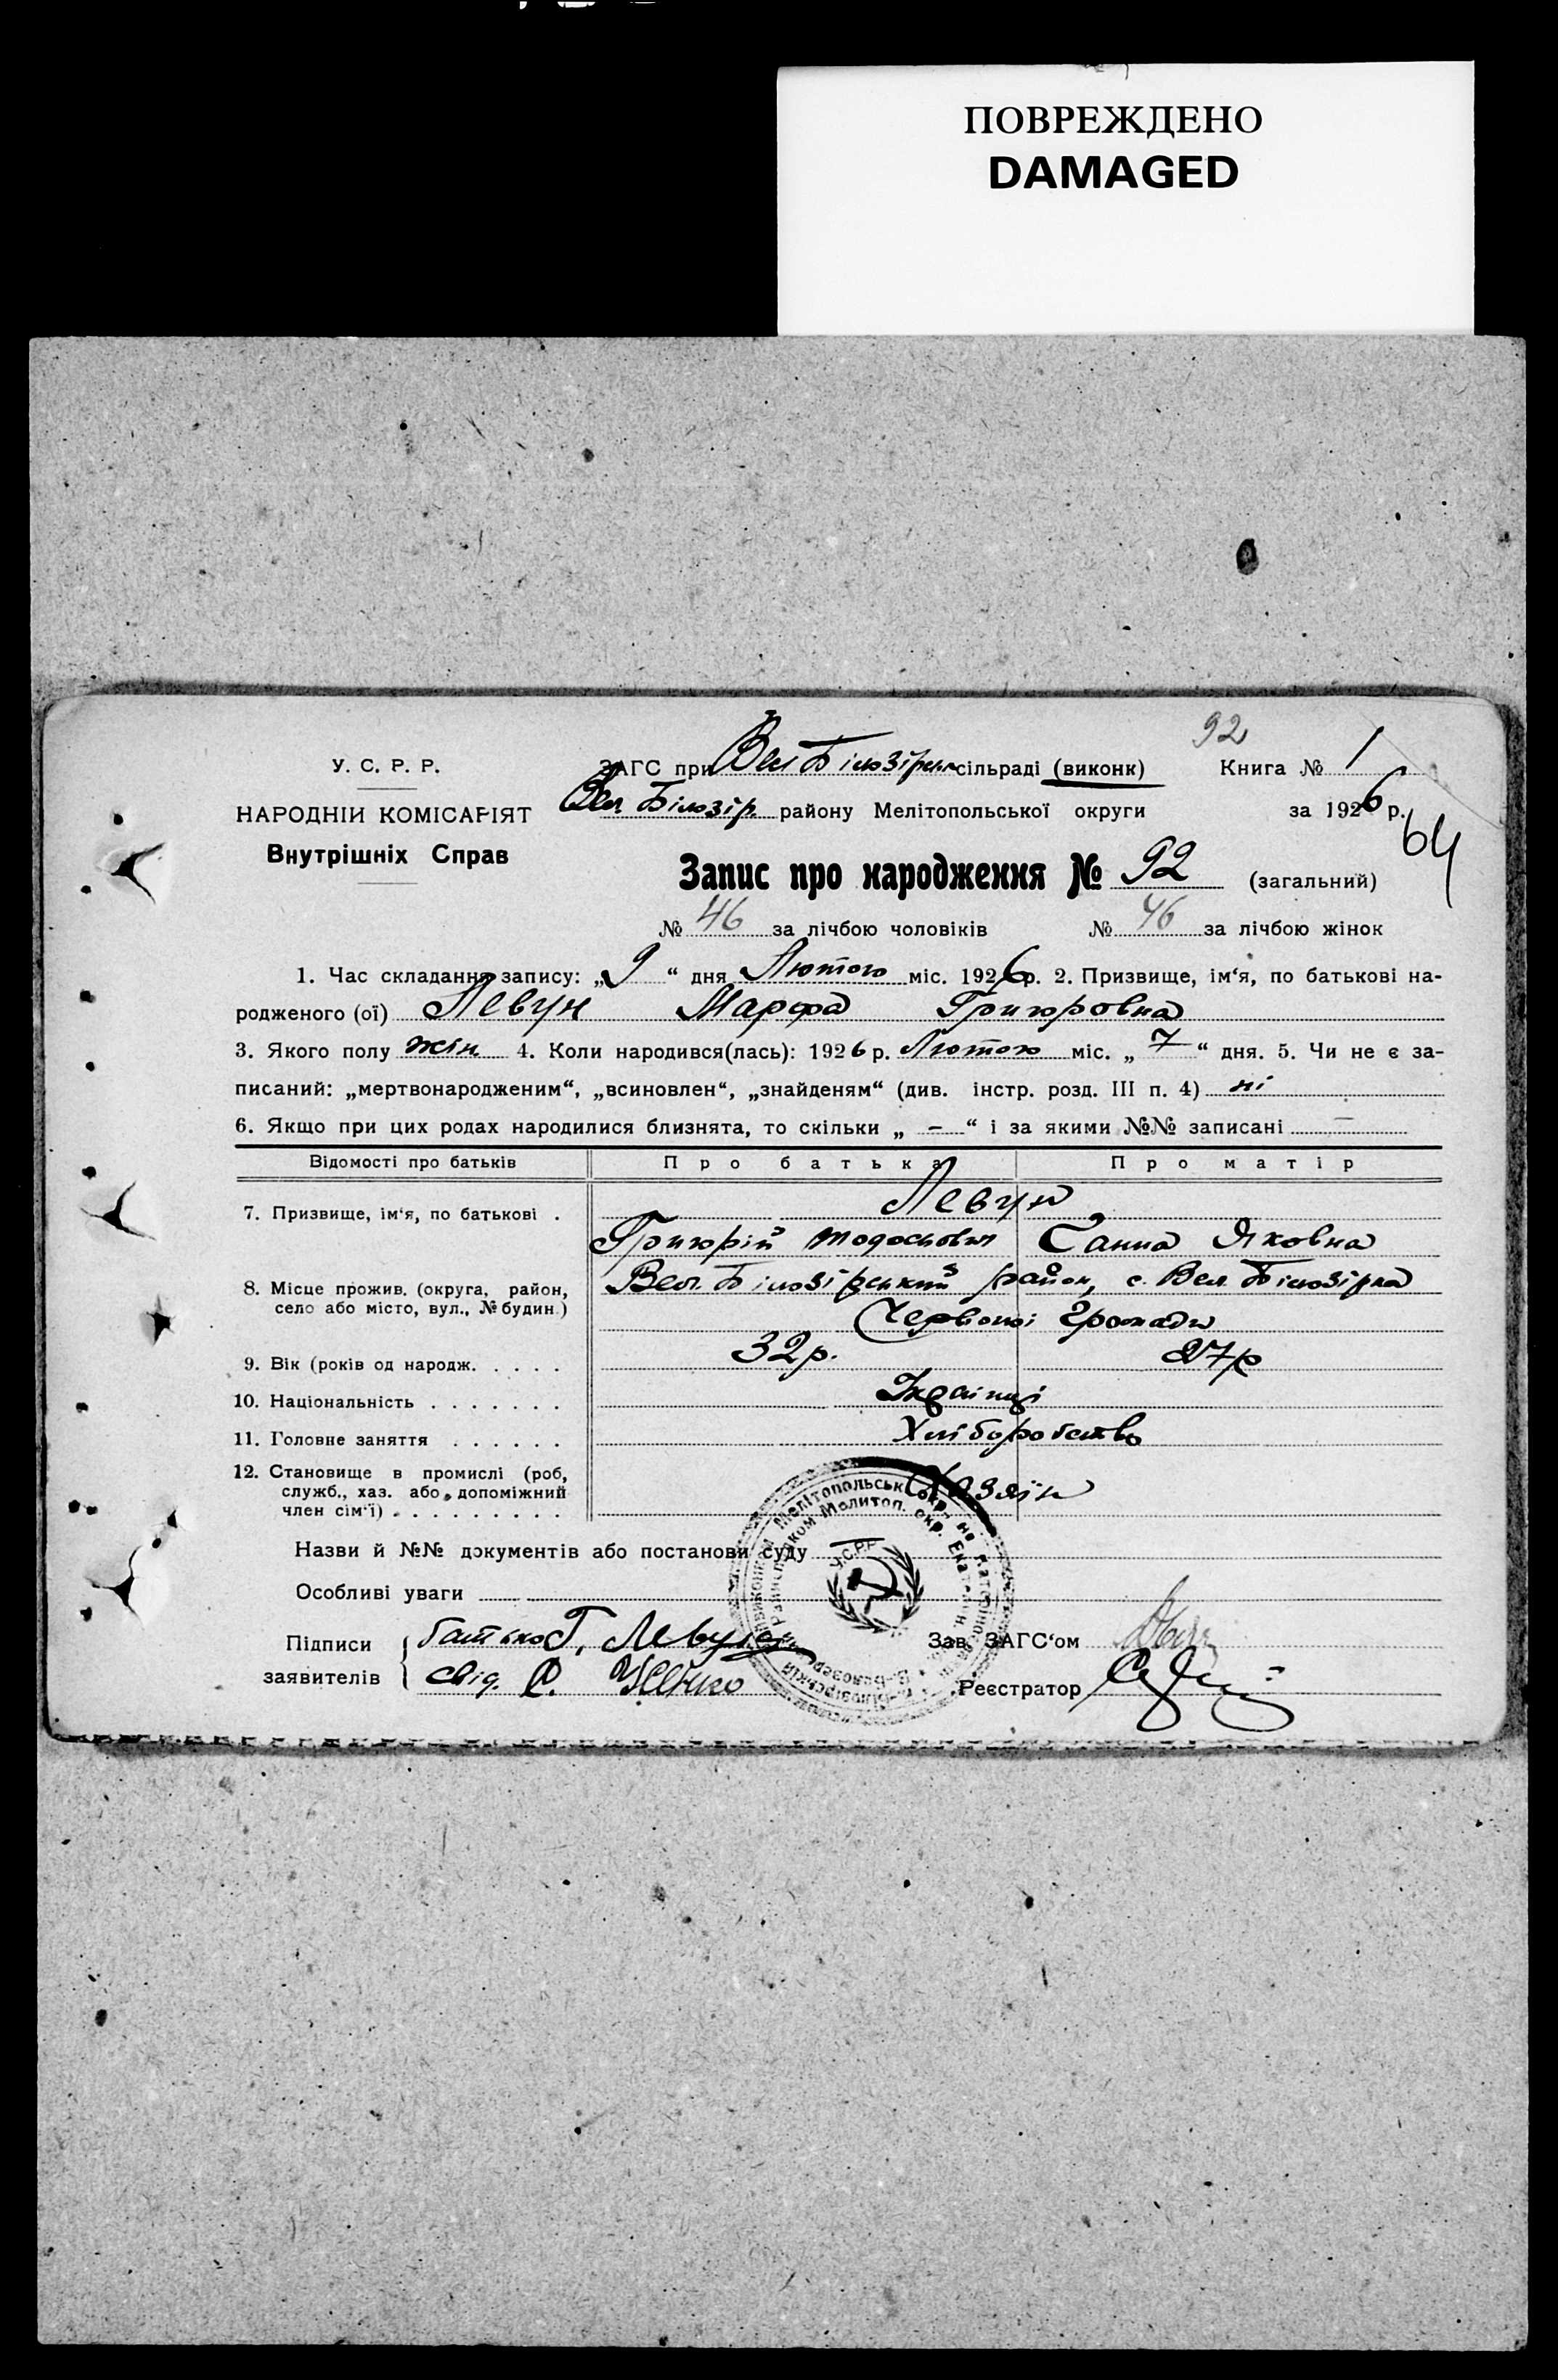 ПОВРЕЖДЕНО
DAMAGED
92
У. С. Р. Р.
ЗАГС при Вел Білозірськ сільраді (виконк) Книга № 1
НАРОДНІЙ КОМІСАРІЯТ
Вел. Білозір. району Мелітопольської округи за 1926 р.
64
Внутрішніх Справ
Запис про народження № 92 (загальний)
№ 46 за лічбою чоловіків № 46 за лічбою жінок
1. Час складання запису: „9“ дня Лютого міс. 1926 р. 2. Призвище, ім‘я, по батькові на-
родженого (ої) Левун Марфа Григоровна
3. Якого полу жін 4. Коли народився(лась): 1926 р. Лютого міс. „7“ дня. 5. Чи не є за-
писаний: „мертвонародженим“, „всиновлен“, „знайденям“ (див. інстр. розд. III п. 4) ні
6. Якщо при цих родах народилися близнята, то скільки „ – “ і за якими №№ записані —
Відомості про батьків Про батька Про матір
7. Призвище, ім‘я, по батькові . Левун
Григорій Тодосьович Ганна Яковна
8. Місце прожив. (округа, район, село або місто, вул., № будин.) Вел. Білозірський район, с. Вел. Білозірка
Червоної Громади
9. Вік (років од народж. . . . . 32 р. 27 р
10. Національність . . . . . . . Українці
11. Головне заняття . . . . . . Хліборобство
12. Становище в промислі (роб, служб., хаз. або допоміжний член сім‘ї) . . . . . . . . . Хазяїн
Назви й №№ документів або постанови суду —
Особливі уваги
У.С.Р.Р.
Підписи батько Г. Левун Зав. ЗАГС‘ом
заявителів свід. Усенко Реєстратор